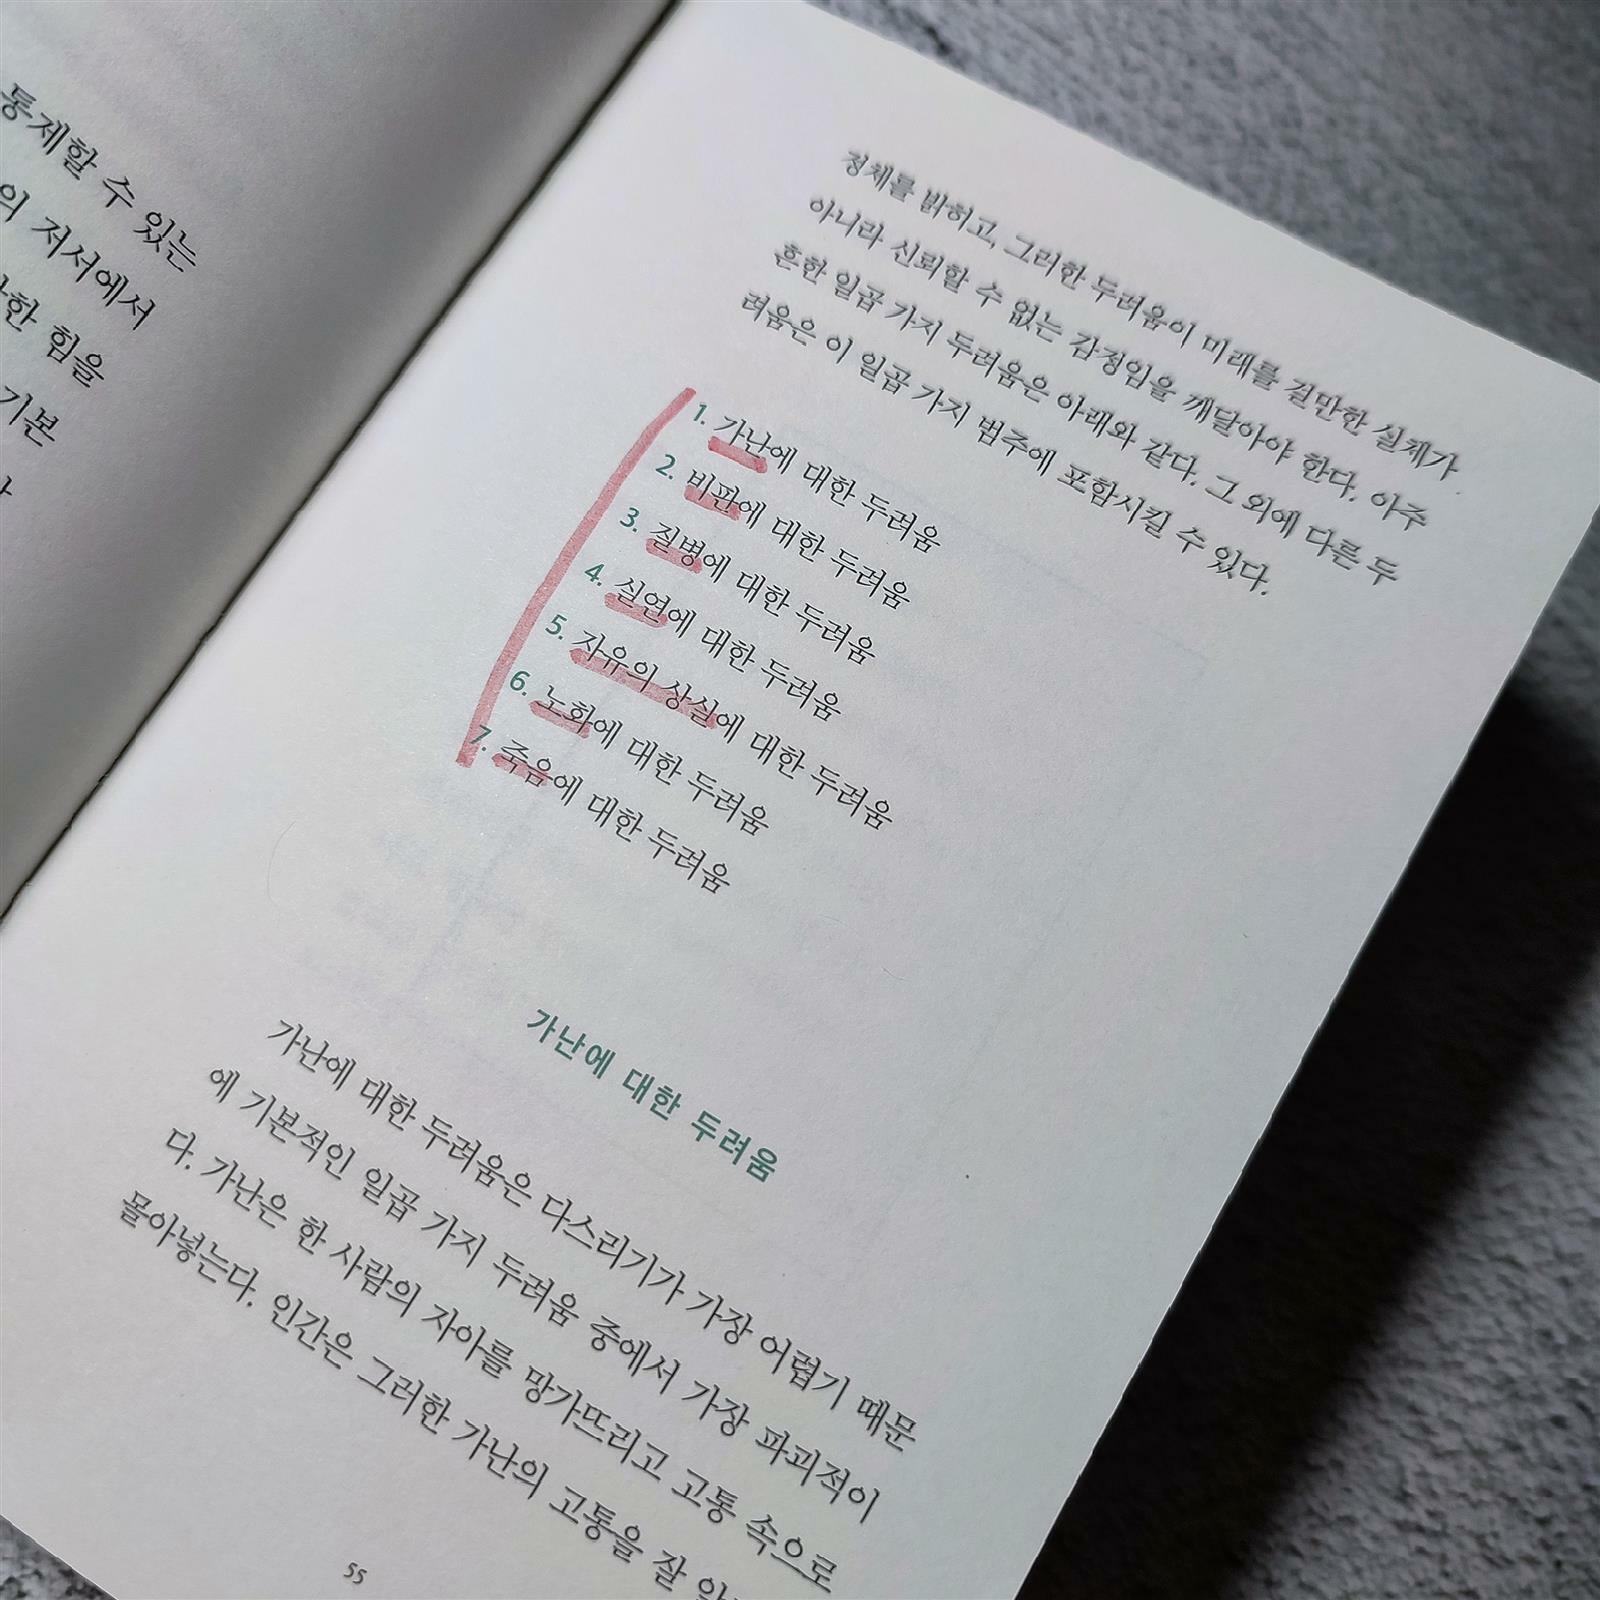 통제할 수 있는
의 저서에서
한 힘을
기본
정체를 밝히고, 그러한 두려움이 미래를 걸만한 실체가
아니라 신뢰할 수 없는 감정임을 깨달아야 한다. 아주
흔한 일곱 가지 두려움은 아래와 같다. 그 외에 다른 두
려움은 이 일곱 가지 범주에 포함시킬 수 있다.
1. 가난에 대한 두려움
2. 비판에 대한 두려움
3. 질병에 대한 두려움
4. 실연에 대한 두려움
5. 자유의 상실에 대한 두려움
6. 노화에 대한 두려움
7. 죽음에 대한 두려움
가난에 대한 두려움
가난에 대한 두려움은 다스리기가 가장 어렵기 때문
에 기본적인 일곱 가지 두려움 중에서 가장 파괴적이
다. 가난은 한 사람의 자아를 망가뜨리고 고통 속으로
몰아넣는다. 인간은 그러한 가난의 고통을 잘
55